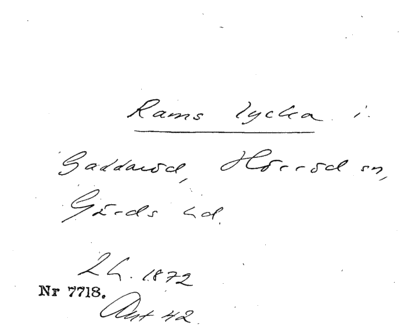 Rams lycka i.
Gaddaröd, Hörröd sn,
Gärds hd.
Lh. 1872
Nr 7718.
Ant 42